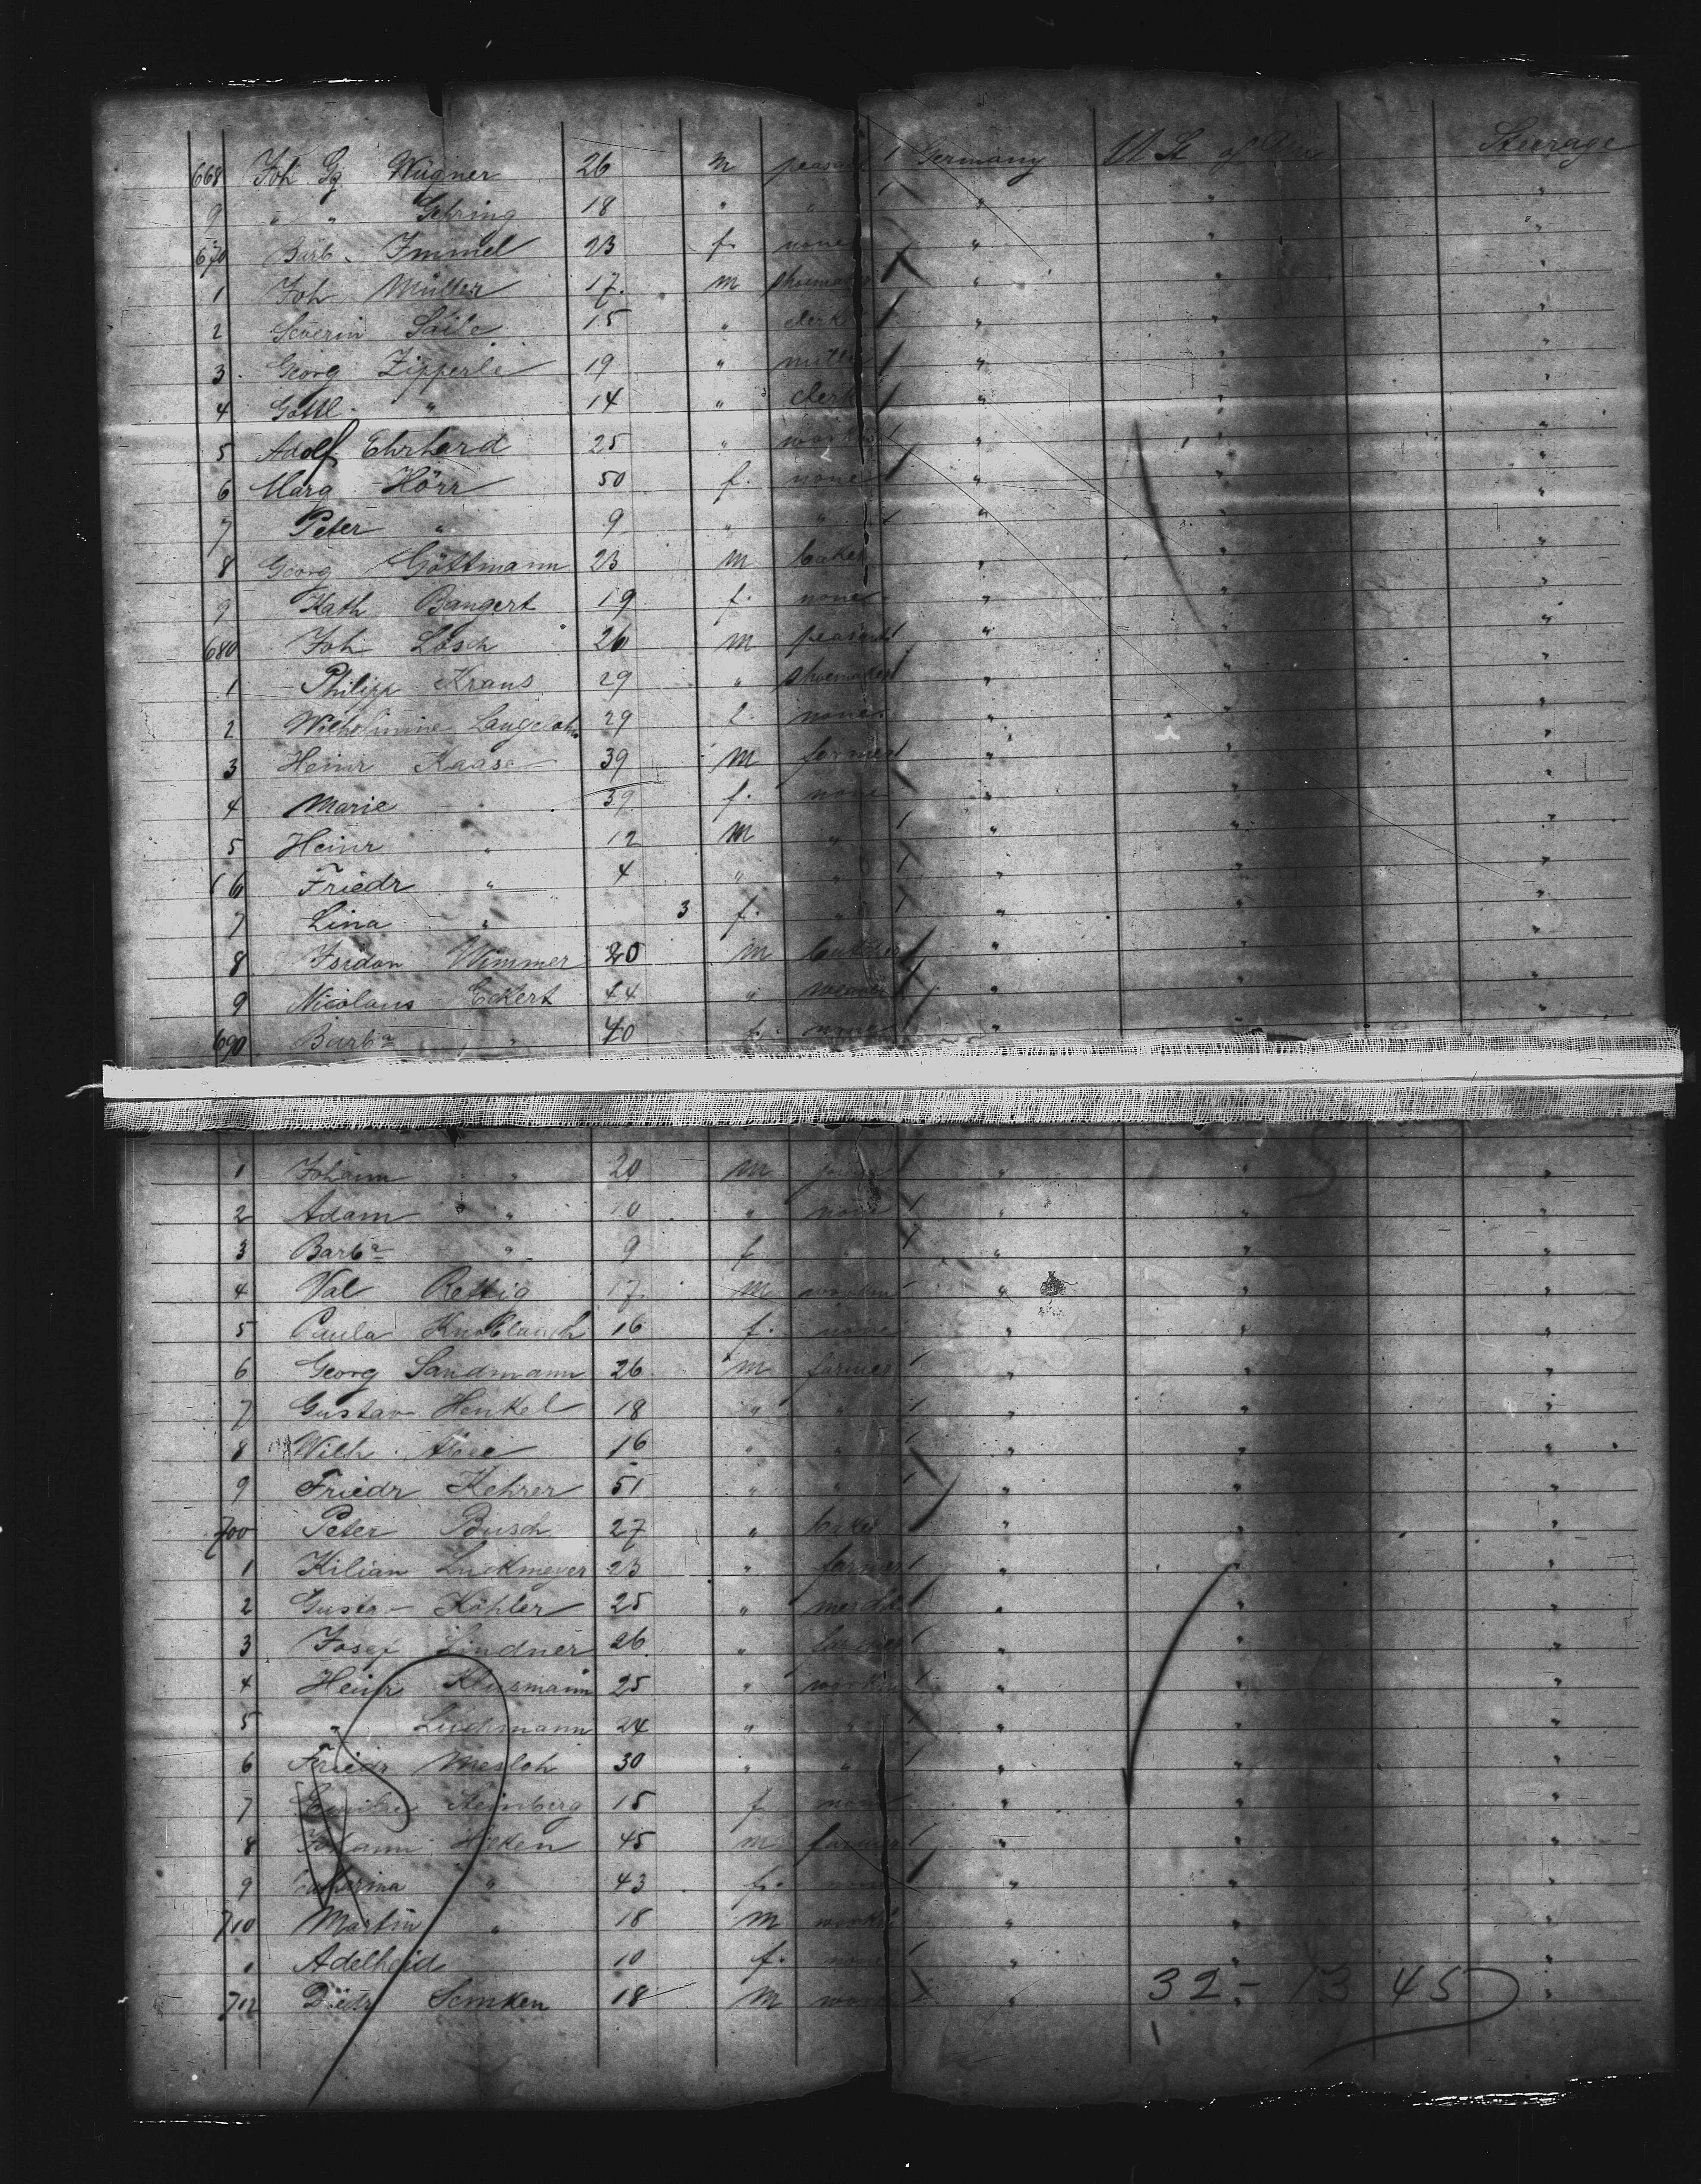 668 Joh Gg Wügner 26 m peasant 1 Germany U St of Steerage
9 " " Gehring 18 " " 1 " " "
670 Barb. Immel 23 f. none " " "
1 Joh Müller 17. m shoemaker 1 " " "
2 Severin Saile 15 " clerk 1 " " "
3 Georg Zipperle 19 " miller 1 " " "
4 Gottl. " 14 " clerk 1 " " "
5 Adolf Ehrhard 25 " 1 " " "
6 Marg Hörr 50 f. none 1 " " "
7 Peter " 9 " " 1 " " "
8 Georg Göttmann 23 m baker " " "
9 Kath Bangert 19 f. none " " "
680 Joh Lösch 26 m peasant 1 " " "
1 Philipp Kraus 29 " shoemaker 1 " " "
2 Wilhelmine 29 f. none " " "
3 Heinr Kaase 39 m farmer 1 " " "
4 Marie " 39 f. none " " "
5 Heinr " 12 m " 1 " " "
6 Friedr " 4 " " 1 " " "
7 Lina " 3 f. " 1 " " "
8 Wimmer 20 m butcher 1 " " "
9 Nicolaus Eckert 44 " weaver 1 " " "
690 Barba " 40 f. none 1 " "
1 Johann " 20 m 1 " " "
2 Adam " 10 " none 1 " " "
3 Barba " 9 f " 1 " " "
4 Val Rettig 17. m workm 1 " " "
5 Paula Knoblauch 16 f. none " " "
6 Georg Sandmann 26 m farmer 1 " " "
7 Gustav Henkel 18 " " 1 " " "
8 Wilh. 16 " " 1 " " "
9 Friedr Kehrer 51 " " 1 " " "
700 Peter Busch 27 " baker " " "
1 Kilian Luckmeyer 23 " farmer 1 " " "
2 Gustav Köhler 25 " mercht 1 " " "
3 Josef Lindner 26. " farmer 1 " " "
4 Heinr Klusmann 25 " workm 1 " " "
5 " Luchmann 24 " " 1 " " "
6 Friedr Mesloh 30 " " 1 " " "
7 Steinberg 15 f none " " "
8 Johann Hilken 45 m farmer 1 " " "
9 Catharina " 43 f. none " " "
710 Martin " 18 m workm " " "
Adelheid 10 f. none 1 " " "
712 Diedr Semken 18 m workm " "
32 - 13 45